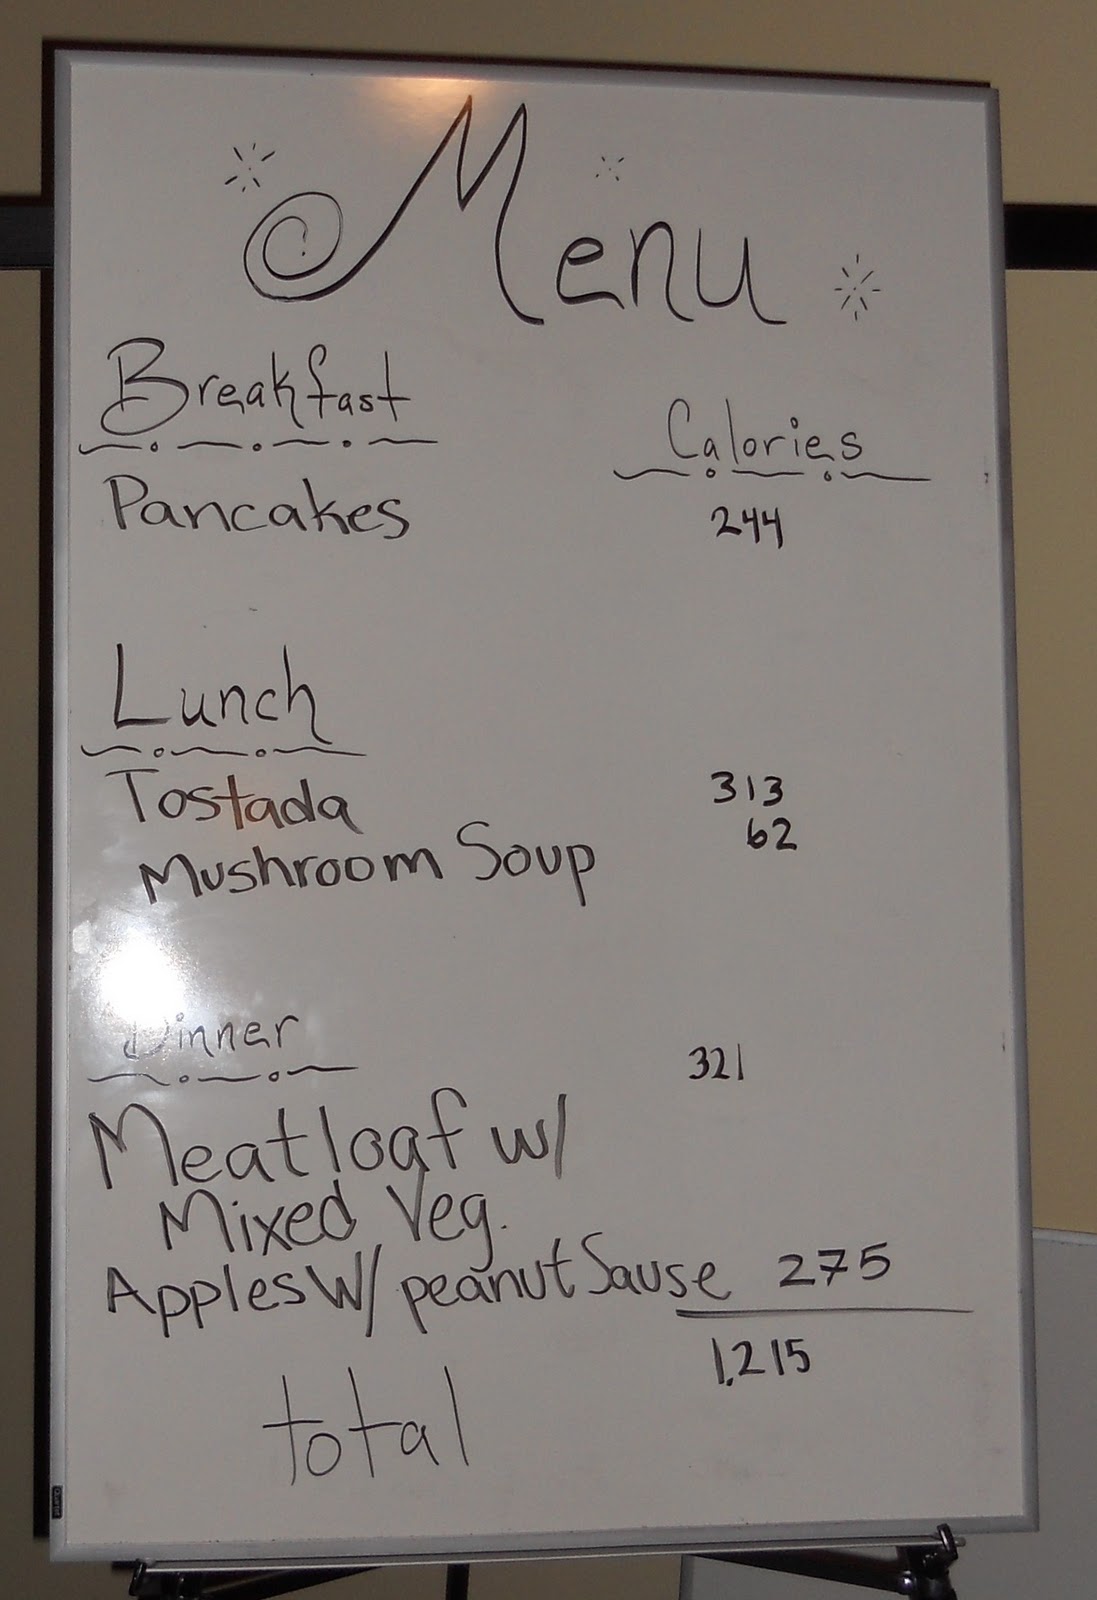 Menu
Breakfast
Calories
Pancakes 244
Lunch
Tostada 313
Mushroom Soup 62
Dinner
321
Meatloaf w/
Mixed Veg.
Apples W/ peanut Sause 275
1,215
total